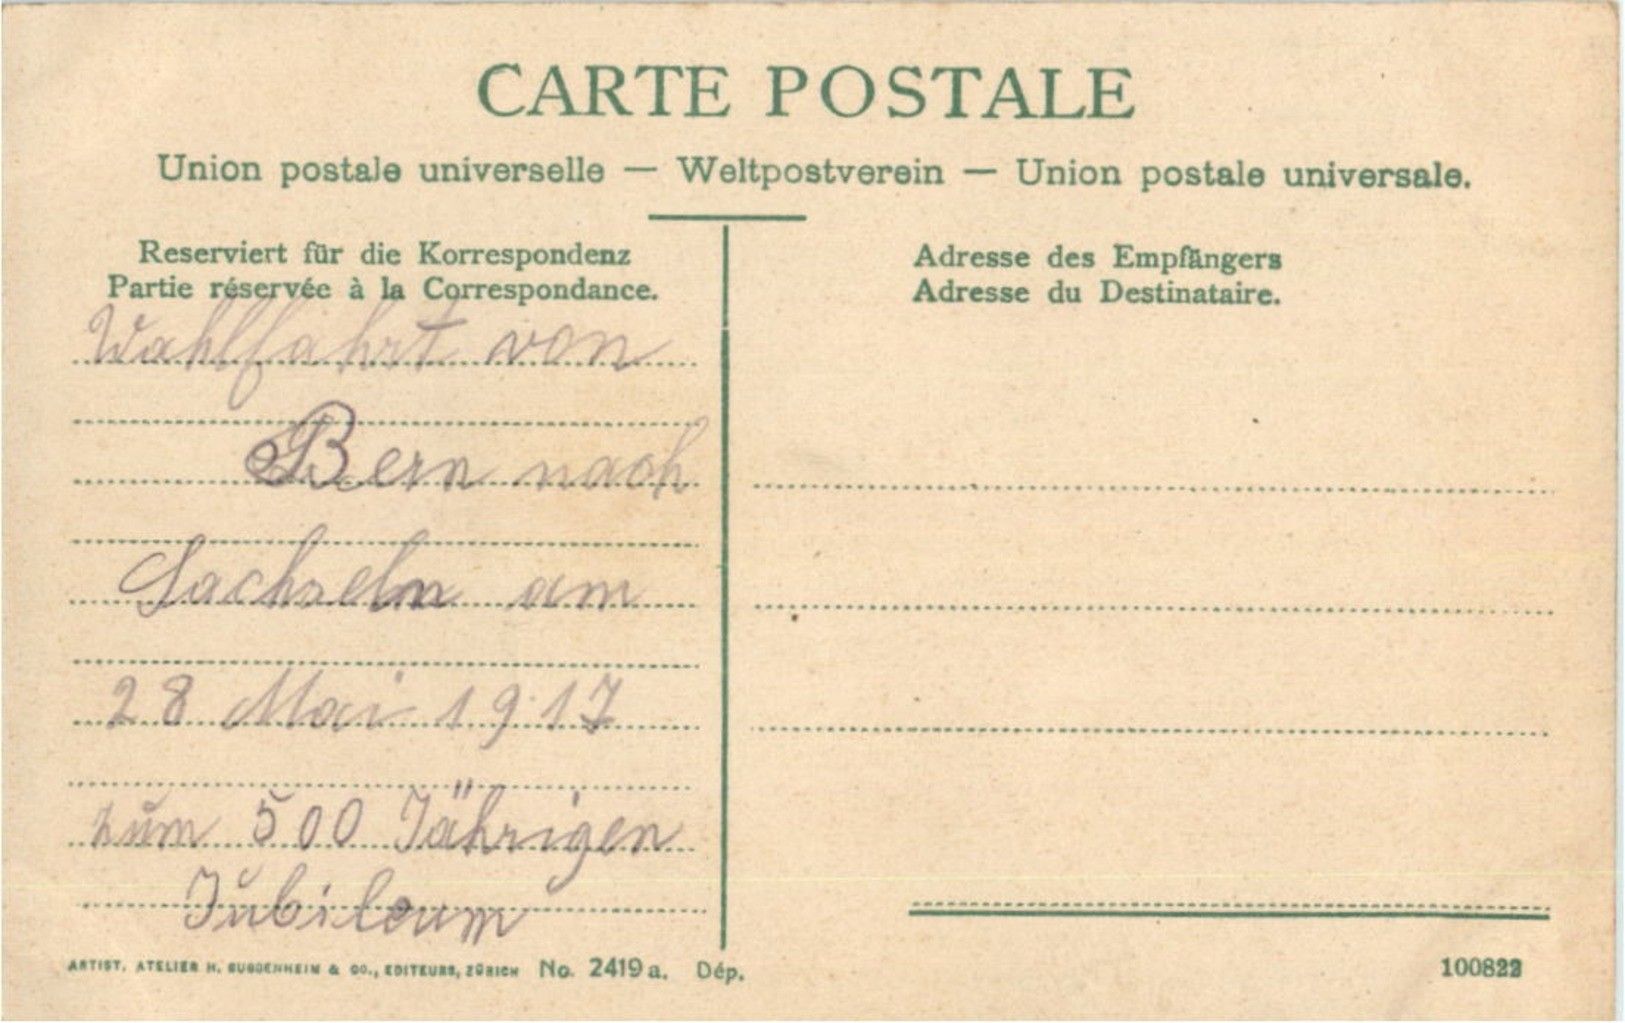 CARTE POSTALE
Union postale universelle — Weltpostverein — Union postale universale.
Reserviert für die Korrespondenz
Partie réservée à la Correspondance.
Adresse des Empfängers
Adresse du Destinataire.
Wahlfahrt von
Bern nach
Sachseln am
28 Mai 1917
zum 500 Jährigen
Jubileum
ARTIST. ATELIER H. GUGGENHEIM & CO., EDITEURS, ZÜRICH No. 2419 a. Dép.
100822